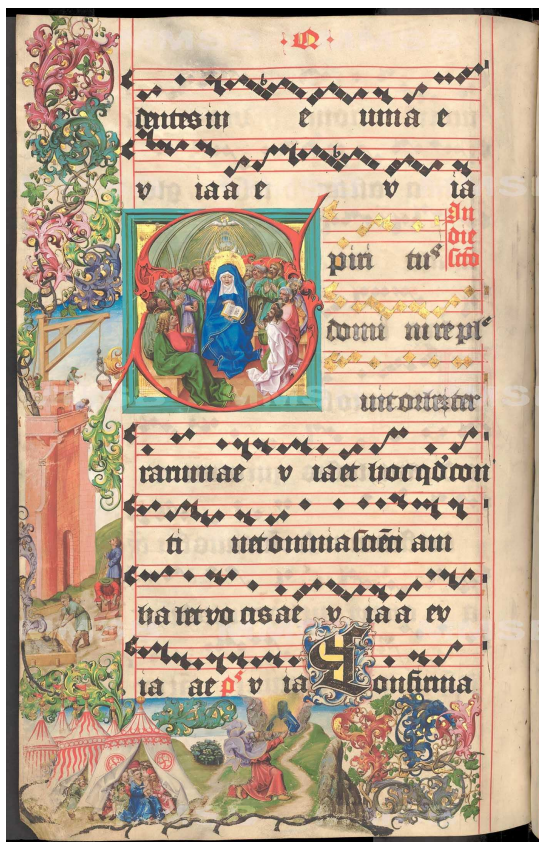 dentes in e uuia e
v ia a e v ia
In die scto
piri tus
domi ni re pl
uit orbē ter
rarum ae v ia et hoc qd con
ti net omnia sciēti am
ha bet vo cis ae v ia a ev
ia ae ps v ia Confirma